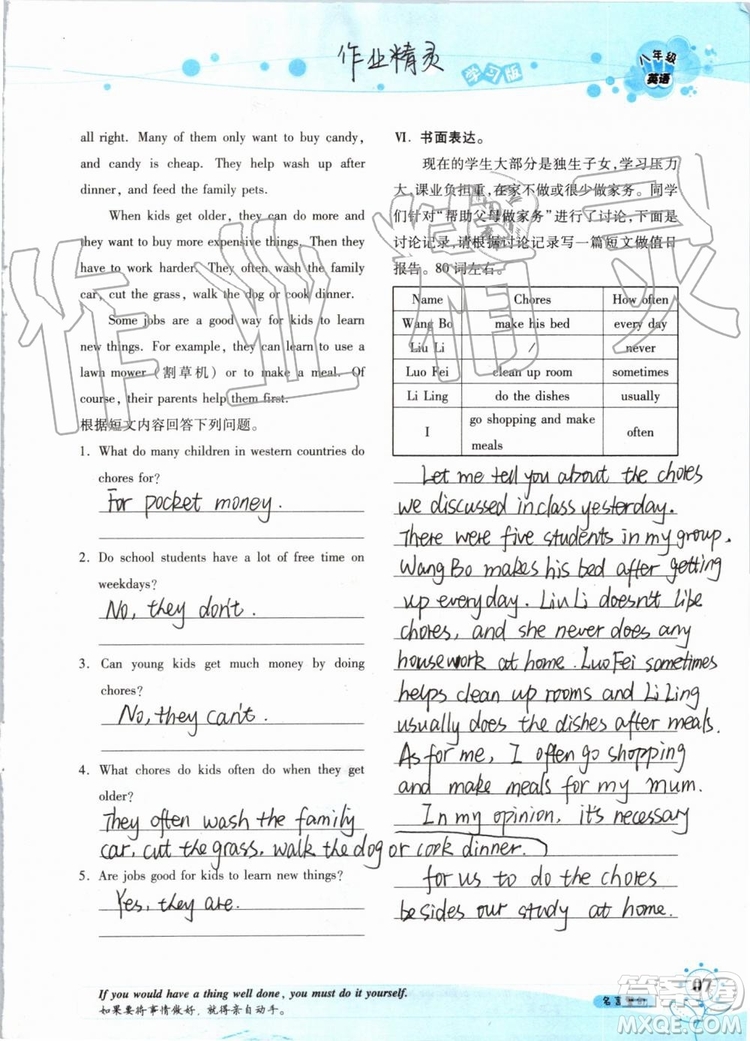 作业精灵
学习版
八年级
英语
all right. Many of them only want to buy candy,
and candy is cheap. They help wash up after
dinner, and feed the family pets.
When kids get older, they can do more and
they want to buy more expensive things. Then they
have to work harder. They often wash the family
car, cut the grass, walk the dog or cook dinner.
Some jobs are a good way for kids to learn
new things. For example, they can learn to use a
lawn mower (割草机) or to make a meal. Of
course, their parents help them first.
根据短文内容回答下列问题。
1. What do many children in western countries do
chores for?
For pocket money.
2. Do school students have a lot of free time on
weekdays?
No, they don't.
3. Can young kids get much money by doing
chores?
No, they can't.
4. What chores do kids often do when they get
older?
They often wash the family
car, cut the grass, walk the dog or cook dinner.
5. Are jobs good for kids to learn new things?
Yes, they are.
Ⅵ. 书面表达。
现在的学生大部分是独生子女,学习压力
大,课业负担重,在家不做或很少做家务。同学
们针对“帮助父母做家务”进行了讨论,下面是
讨论记录,请根据讨论记录写一篇短文做值日
报告。80词左右。
Name Chores How often
Wang Bo make his bed every day
Liu Li / never
Luo Fei clean up room sometimes
Li Ling do the dishes usually
I go shopping and make meals often
Let me tell you about the chores
we discussed in class yesterday.
There were five students in my group.
Wang Bo makes his bed after getting
up everyday. Liu Li doesn't like
chores, and she never does any
housework at home. Luo Fei sometimes
helps clean up rooms and Li Ling
usually does the dishes after meals.
As for me, I often go shopping
and make meals for my mum.
In my opinion, it's necessary
for us to do the chores
besides our study at home.
If you would have a thing well done, you must do it yourself.
如果要将事情做好,就得亲自动手。
名言
07
作业精灵
答案圈
MXQE.COM